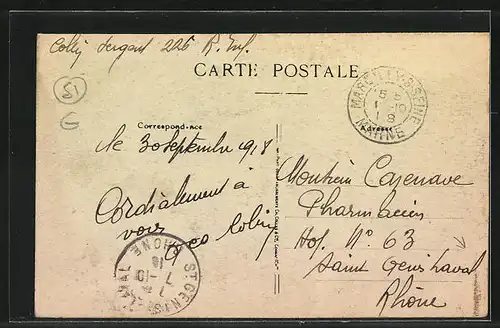 Colly Sergent 226 R. Inf.
51
G
CARTE POSTALE
MARCILLY-S-SEINE
5 5
1 -10
18
MARNE
Correspondance
Adresse
le 30 septembre 1918
Cordialement à
vous
Monsieur Cazenave
Pharmacien
Hop. N° 63
Saint Genis Laval
Rhône
ST GENIS-LAVAL
7 -10
18
RHONE